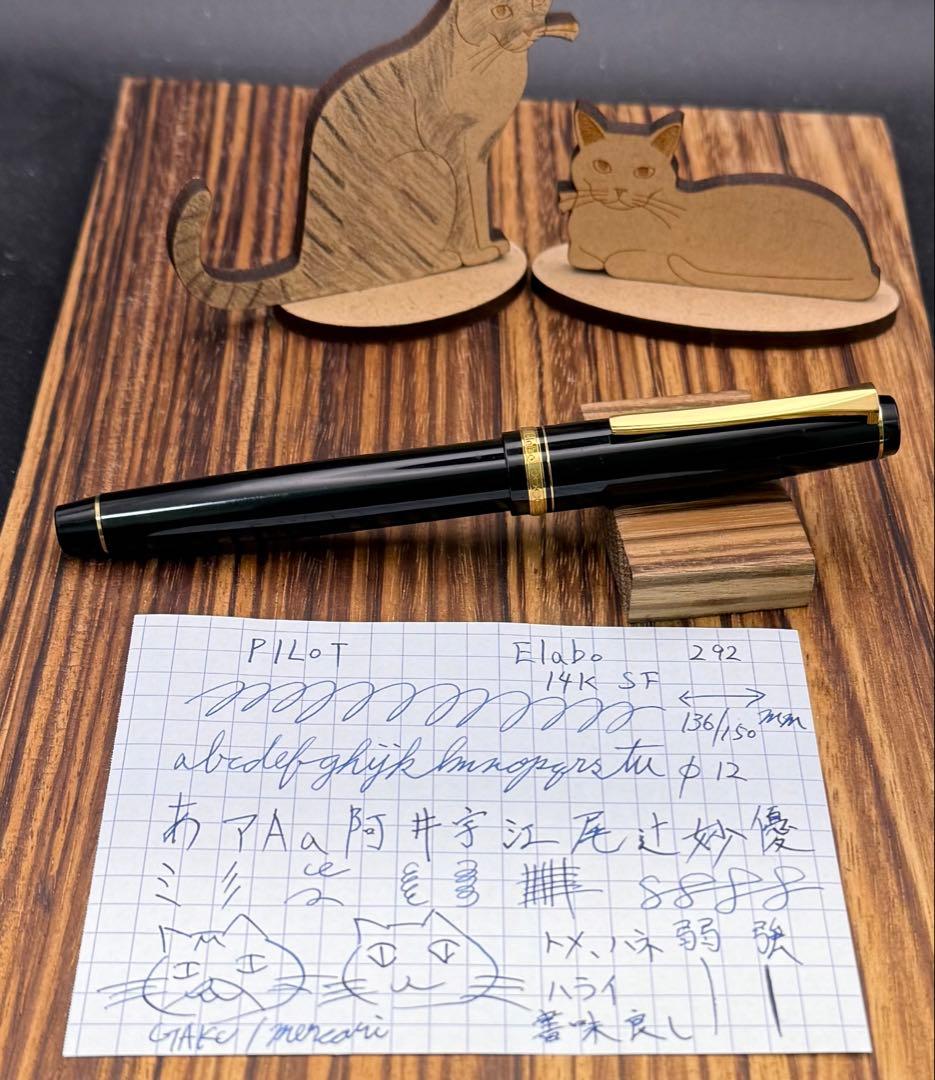 PILOT Elabo 292
14K SF
136/150 mm
abcdefghijklmnopqrstu φ12
あ ア A a 阿 井 宇 江 尾 辻 妙 優
トメ、ハネ 弱 強
ハライ
書味良し
GAKE/mercari